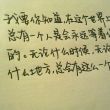 我要你知道,在这个世界上
总有一个人是会永远等着你
的。无论什么时候,无论在
什么地方,总会有这么一个